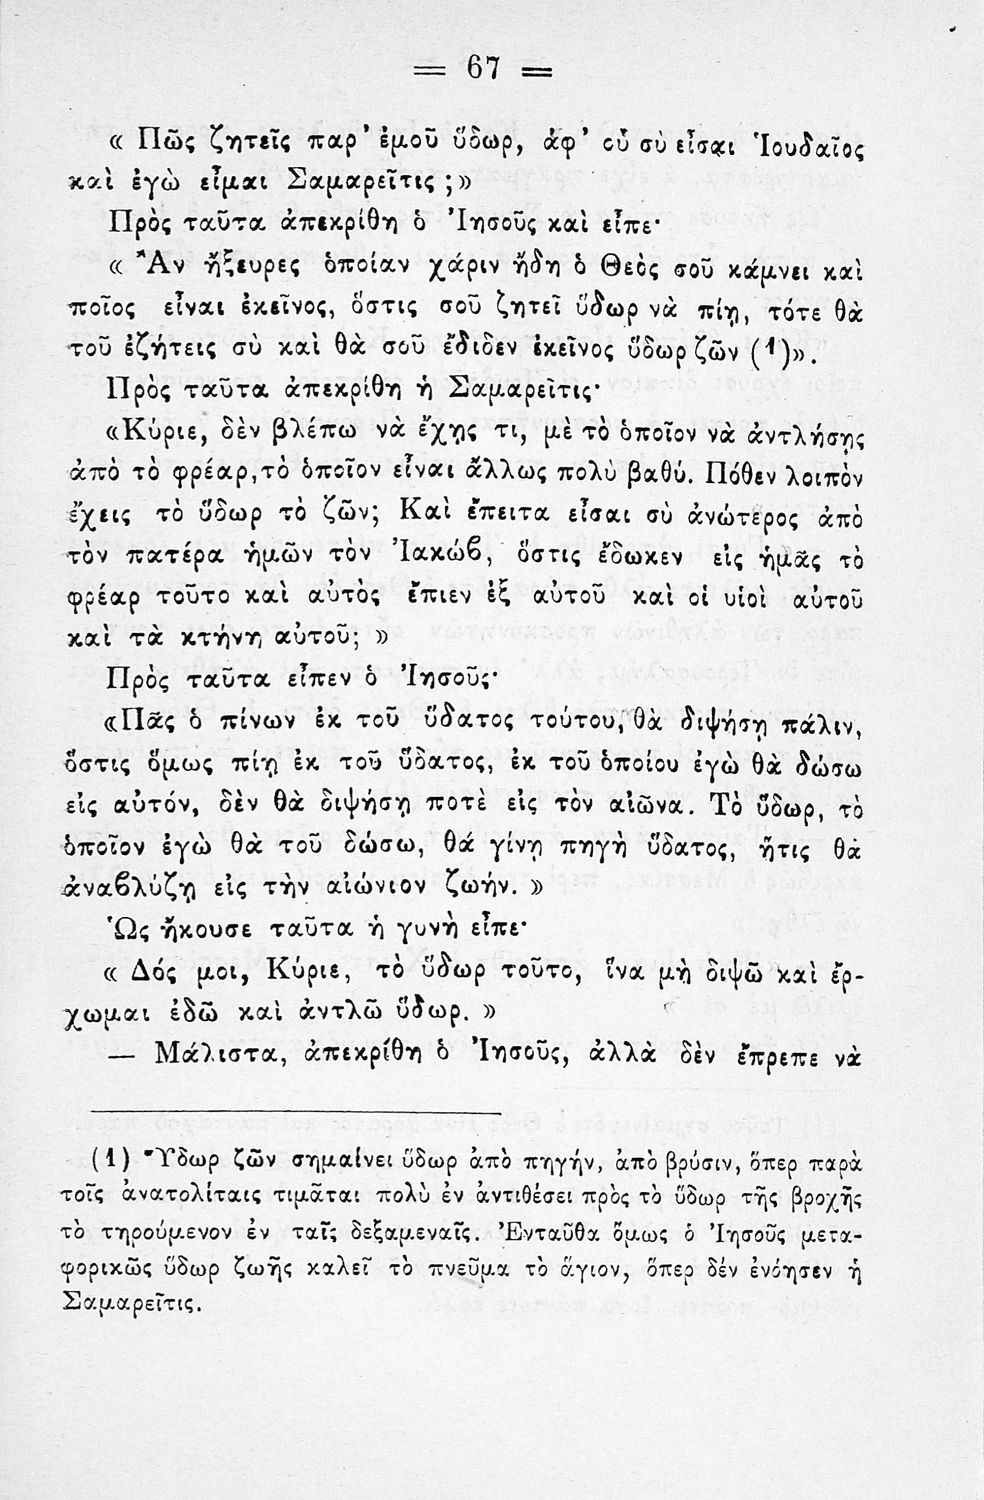 = 67 =
« Πῶς ζητεῖς παρ’ ἐμοῦ ὕδωρ, ἀφ’ οὗ σὺ εἶσαι Ἰουδαῖος
καὶ ἐγὼ εἶμαι Σαμαρεῖτις ;»
Πρὸς ταῦτα ἀπεκρίθη ὁ Ἰησοῦς καὶ εἶπε·
« Ἂν ἤξευρες ὁποίαν χάριν ἤδη ὁ Θεὸς σοῦ κάμνει καὶ
ποῖος εἶναι ἐκεῖνος, ὅστις σοῦ ζητεῖ ὕδωρ νὰ πίῃ, τότε θὰ
τοῦ ἐζήτεις σὺ καὶ θὰ σοῦ ἔδιδεν ἐκεῖνος ὕδωρ ζῶν (1)».
Πρὸς ταῦτα ἀπεκρίθη ἡ Σαμαρεῖτις·
«Κύριε, δὲν βλέπω νὰ ἔχῃς τι, μὲ τὸ ὁποῖον νὰ ἀντλήσῃς
ἀπὸ τὸ φρέαρ, τὸ ὁποῖον εἶναι ἄλλως πολὺ βαθύ. Πόθεν λοιπὸν
ἔχεις τὸ ὕδωρ τὸ ζῶν; Καὶ ἔπειτα εἶσαι σὺ ἀνώτερος ἀπὸ
τὸν πατέρα ἡμῶν τὸν Ἰακώβ, ὅστις ἔδωκεν εἰς ἡμᾶς τὸ
φρέαρ τοῦτο καὶ αὐτὸς ἔπιεν ἐξ αὐτοῦ καὶ οἱ υἱοὶ αὐτοῦ
καὶ τὰ κτήνη αὐτοῦ; »
Πρὸς ταῦτα εἶπεν ὁ Ἰησοῦς·
«Πᾶς ὁ πίνων ἐκ τοῦ ὕδατος τούτου, θὰ διψήσῃ πάλιν,
ὅστις ὅμως πίῃ ἐκ τοῦ ὕδατος, ἐκ τοῦ ὁποίου ἐγὼ θὰ δώσω
εἰς αὐτόν, δὲν θὰ διψήσῃ ποτὲ εἰς τὸν αἰῶνα. Τὸ ὕδωρ, τὸ
ὁποῖον ἐγὼ θὰ τοῦ δώσω, θά γίνῃ πηγὴ ὕδατος, ἥτις θὰ
ἀναβλύζῃ εἰς τὴν αἰώνιον ζωήν. »
Ὡς ἤκουσε ταῦτα ἡ γυνὴ εἶπε·
« Δός μοι, Κύριε, τὸ ὕδωρ τοῦτο, ἵνα μὴ διψῶ καὶ ἔρ-
χωμαι ἐδῶ καὶ ἀντλῶ ὕδωρ. »
— Μάλιστα, ἀπεκρίθη ὁ Ἰησοῦς, ἀλλὰ δὲν ἔπρεπε νὰ
(1) Ὕδωρ ζῶν σημαίνει ὕδωρ ἀπὸ πηγήν, ἀπὸ βρύσιν, ὅπερ παρὰ
τοῖς ἀνατολίταις τιμᾶται πολὺ ἐν ἀντιθέσει πρὸς τὸ ὕδωρ τῆς βροχῆς
τὸ τηρούμενον ἐν ταῖς δεξαμεναῖς. Ἐνταῦθα ὅμως ὁ Ἰησοῦς μετα-
φορικῶς ὕδωρ ζωῆς καλεῖ τὸ πνεῦμα τὸ ἅγιον, ὅπερ δέν ἐνόησεν ἡ
Σαμαρεῖτις.